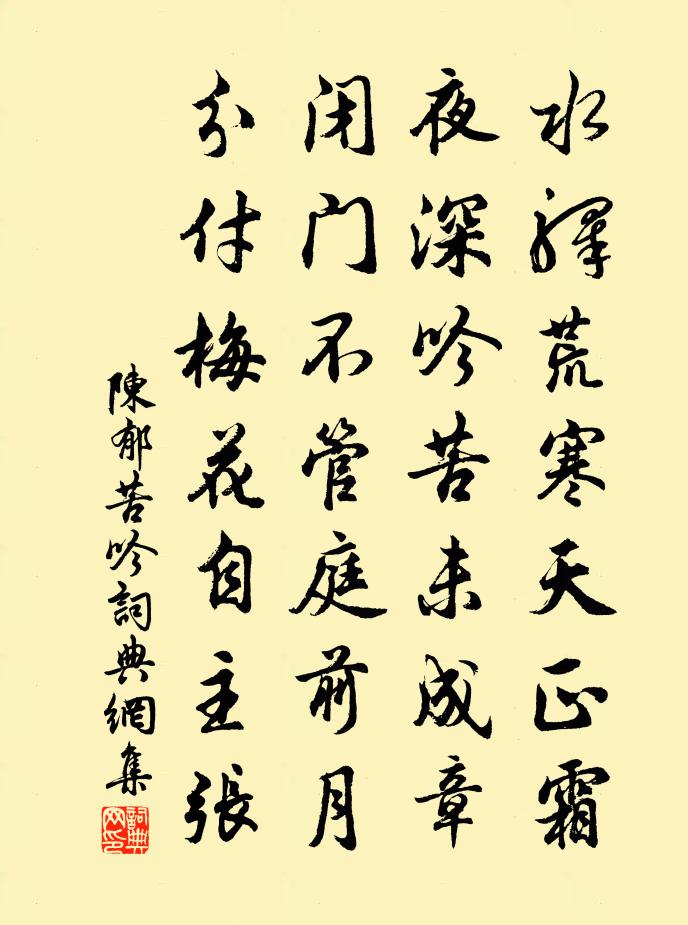 水驛荒寒天正霜
夜深吟苦未成章
闭门不管庭前月
分付梅花自主張
陳郁苦吟詞典網集
詞典网印